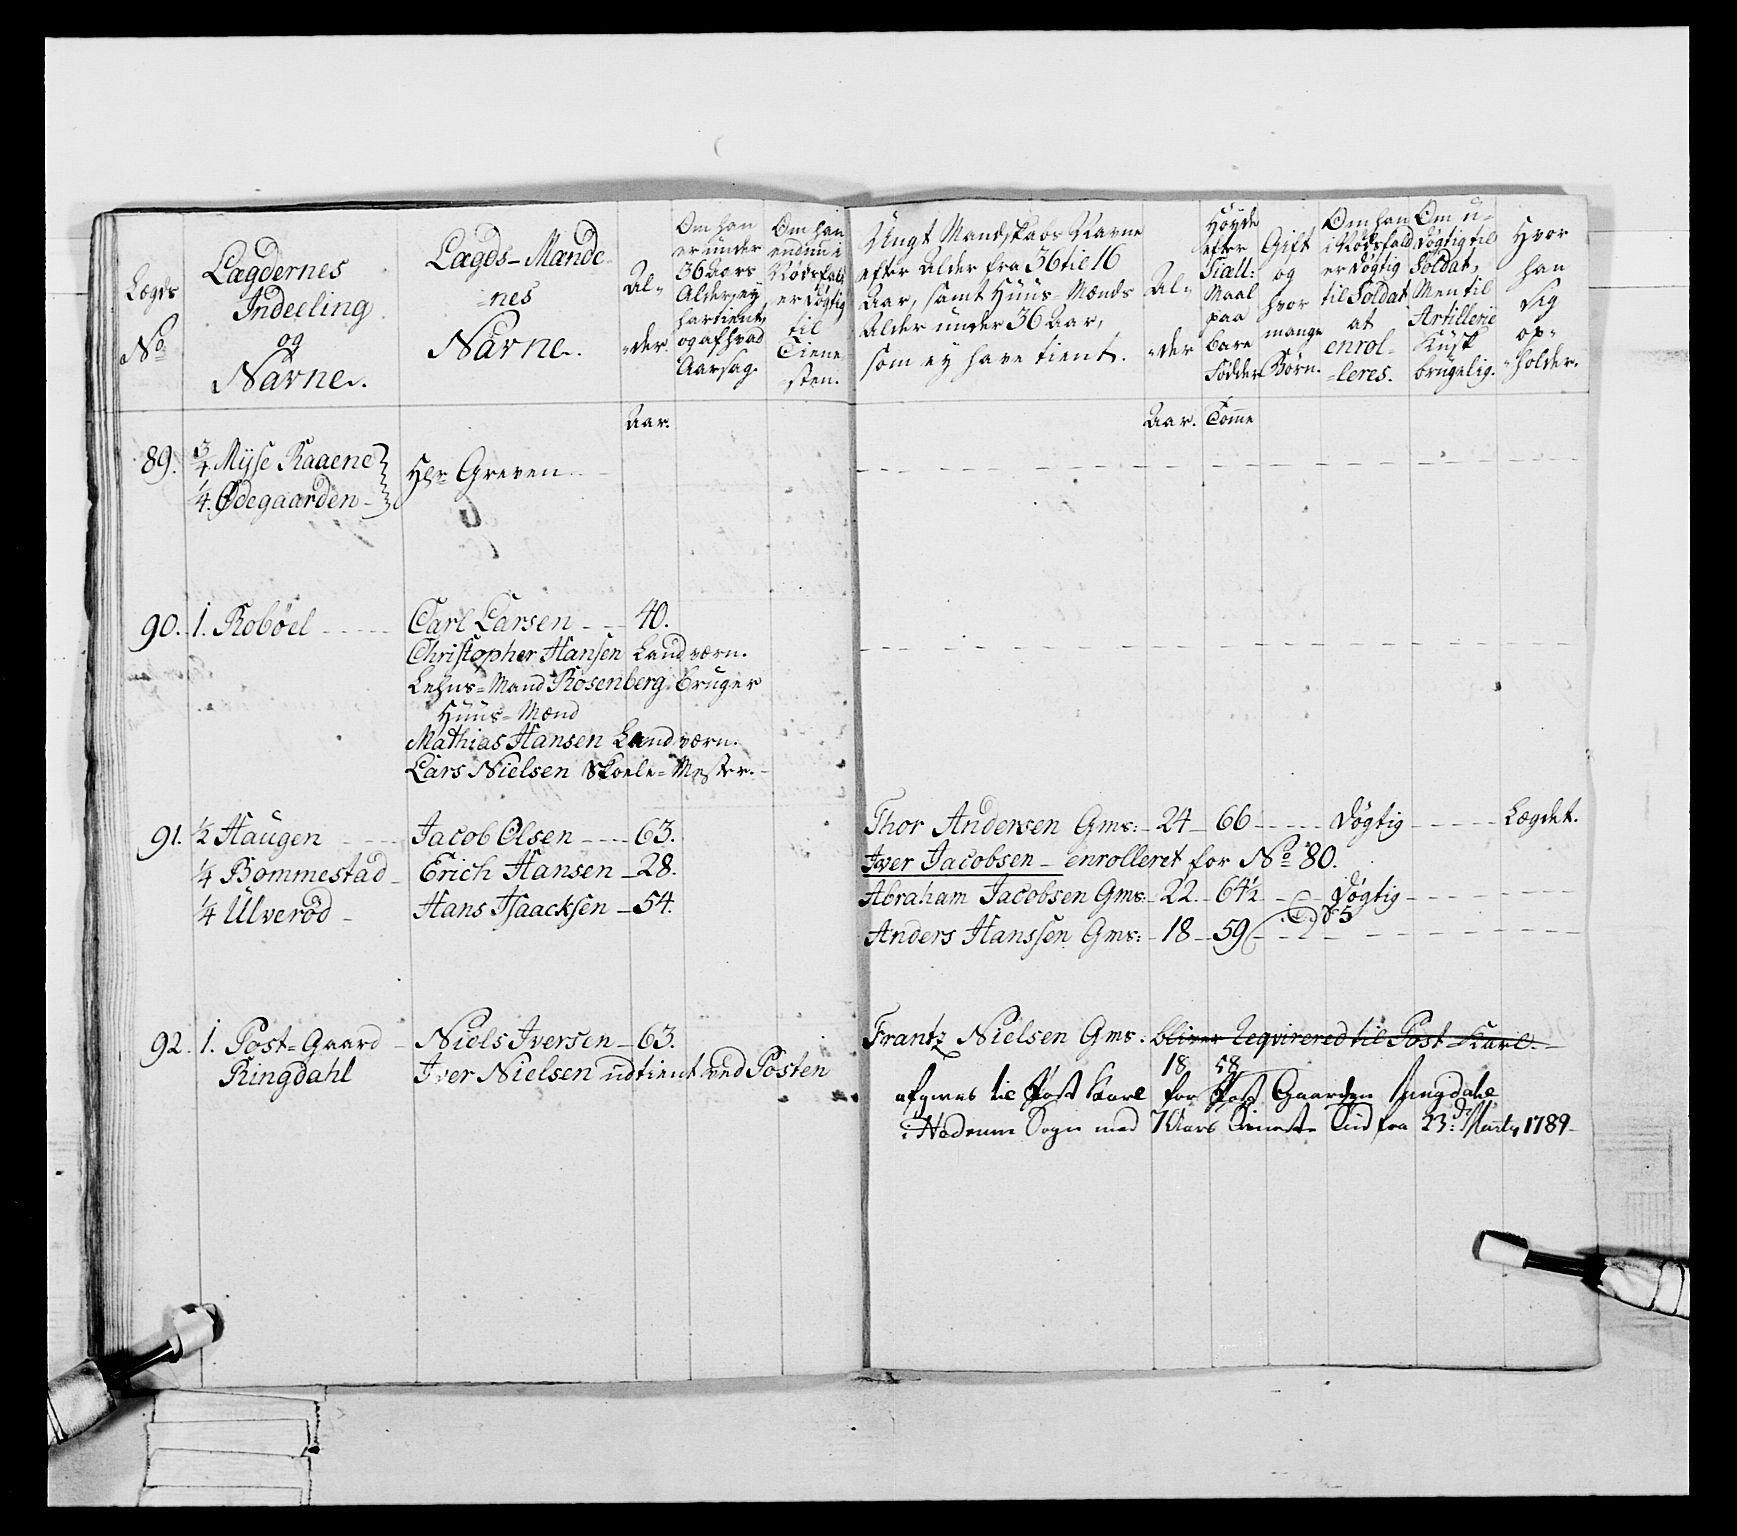 Lægds
No
Lægdernes
Indeeling
og
Navne.
Lægds-Mænde
=nes
Navne.
Al=
=der.
Om han
er under
36 Aars
Alder, ey
har tient,
og af hvad
Aarsag.
Om han
endnu i
Nødsfald
er døgtig
til
Tiene
sten.
Ungt Mandskabs Navne
efter Alder fra 36 til 16
Aar, samt Huus-Mænds
Alder under 36 Aar,
som ey have tient.
Al=
=der
Høyde
efter
Siell:
Maal
paa
bare
Fødder
Gift
og
hvor
mange
Børn.
Om han
i Nødsfald
er døgtig
til Soldat
at
enrol-
=leres.
Om u-
døgtig til
Soldat,
Men til
Artillerie
Kusk
brugelig.
Hvor
han
sig
op=
=holder.
Aar.
Aar. Tomme
89. 3/4 Myse Raaene Hr Greven
1/4. Ødegaarden
90. 1. Robøel Carl Larsen 40.
Christopher Hansen Landværn.
Lehns-Mand Rosenberg bruger
Huus-Mænd
Mathias Hansen Landværn.
Lars Nielsen Skole-Mester.
91. 1/2 Haugen Jacob Olsen 63. Thor Andersen Gms: 24 66 Døgtig Lægdet.
1/4 Bommestad Erich Hansen 28. Iver Jacobsen enrolleret for No 80.
1/4 Ulverød Hans Isaacksen 54. Abraham Jacobsen Gms: 22. 64 1/2 Døgtig
Anders Hanssen Gms: 18 59
92. 1. Post-Gaard Niels Iversen 63. Frantz Nielsen Gms: bliver reqvirered til Post-Karl.
Ringdahl Iver Nielsen udtient ved Posten
18 58
afgives til Post Karl for Post Gaarden Ringdahl
i Hedrum Sogn med 7 Aars Tieneste Tid fra 23de Marty 1789